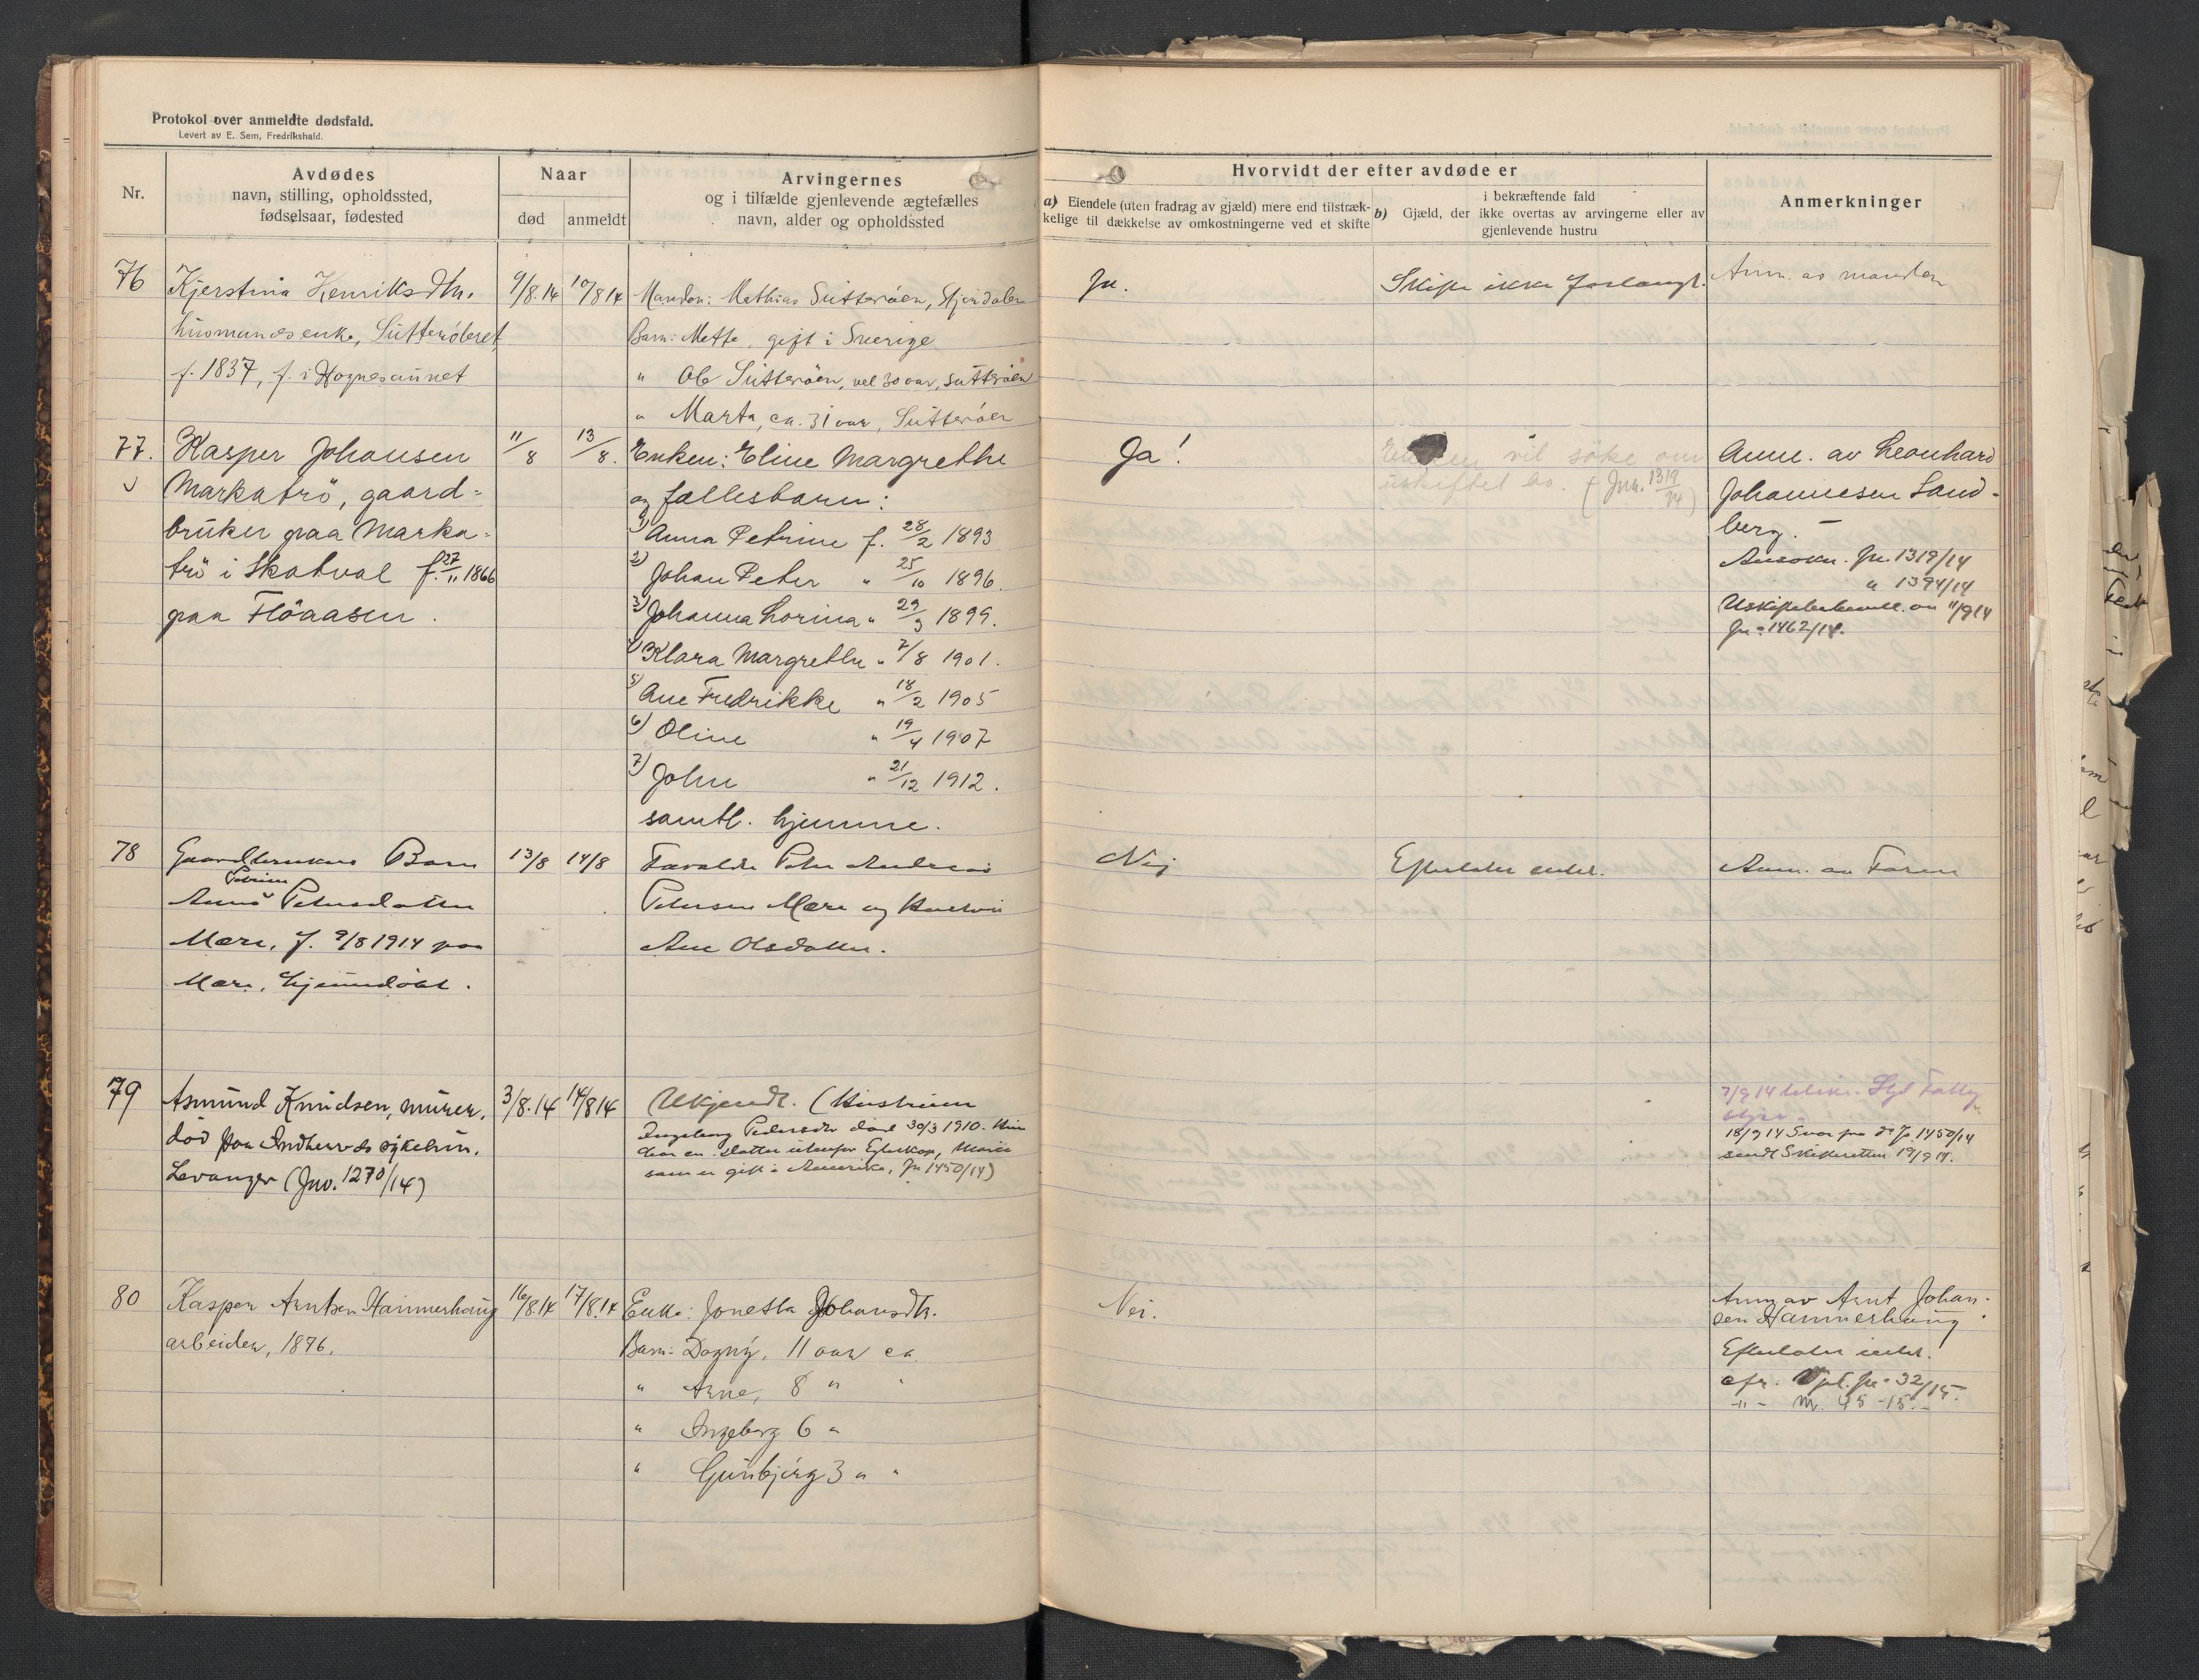 Protokol over anmeldte dødsfald.
Levert av E. Sem, Fredrikshald.
Nr.
Avdødes
navn, stilling, opholdssted,
fødselsaar, fødested
Naar
død
anmeldt
Arvingernes
og i tilfælde gjenlevende ægtefælles
navn, alder og opholdssted
Hvorvidt der efter avdøde er
a) Eiendele (uten fradrag av gjæld) mere end tilstræk-
kelige til dækkelse av omkostningerne ved et skifte
b) Gjæld, der ikke overtas av arvingerne eller av
i bekræftende fald
gjenlevende hustru
Anmerkninger
76
Kjerstina Henriksdtr.
husmandsenke, Sutterøleret,
f. 1837, f. i Hognesaunet
9/8.14
10/8 14
Manden: Mathias Sutterøen, Stjørdalen
Barn: Mette, gift i Sverige
" Ole Sutterøen, vel 30 aar, Sutterøen
" Marta, ca. 31 aar, Sutterøen
Ja.
Skifte ikke forlangt.
Anm. av manden
77.
Kasper Johansen
Markatrö, gaard-
bruker paa Marka-
trö i Skatval f. 27/11 1866
paa Flöaasen.
11/8
13/8.
Enken: Eline Margrethe
og fællesbarn:
1) Anna Petrine f. 28/2 1893
2) Johan Peter " 25/10 1896.
3) Johanna Lorina " 29/3 1899.
4) Klara Margrethe " 7/8 1901.
5) Ane Fredrikke " 18/2 1905
6) Oline " 19/4 1907
7) John " 21/12 1912.
samtl. hjemme.
Ja!
Enken vil søke om
uskiftet bo. (Jnr. 1319/14)
Anm. av Leonhard
Johannesen Sand-
berg. -
Ansøkn. Jn. 1319/14
" 1394/14
Uskiftebevill. av 11/9 14
Jn: 1462/14.
78
Gaardbrukers Barn
Petrine
Anna Petersdatter
Mære, f. 9/8 1914 paa
Mære, hjemmedöbt.
13/8
14/8
Forældre Peter Andreas
Petersen Mære og Hustru
Ane Olsdatter.
Nei
Efterlater intet.
Anm. av Faren
79
Asmund Knudsen, murer,
død paa Indherreds sykehus,
Levanger (Jno. 1270/14)
3/8.14
14/8 14
Ukjendt. (Hustruen
Ingeborg Pedersdtr død 30/3 1910. Hun
har en datter utenfor Egteskap, Marie
som er gift i Amerika, Jn 1450/14)
18/9 14 Svar fra do Jn. 1450/14
sendt Skifteretten 19/9 14.
80
Kasper Arntsen Hammerhaug
arbeider, 1876.
16/8.14
17/8.14
Enke: Jonetta Johansdtr.
Barn: Dagny, 11 aar ca
" Arne, 8 " "
" Ingeborg 6 "
" Gunbjörg 3 " "
Nei.
Anm av Arnt Johan-
sen Hammerhaug.
Efterlater intet.
cfr. Vpl. Jn: 32/15.
-"- nr. 45 - 15. -